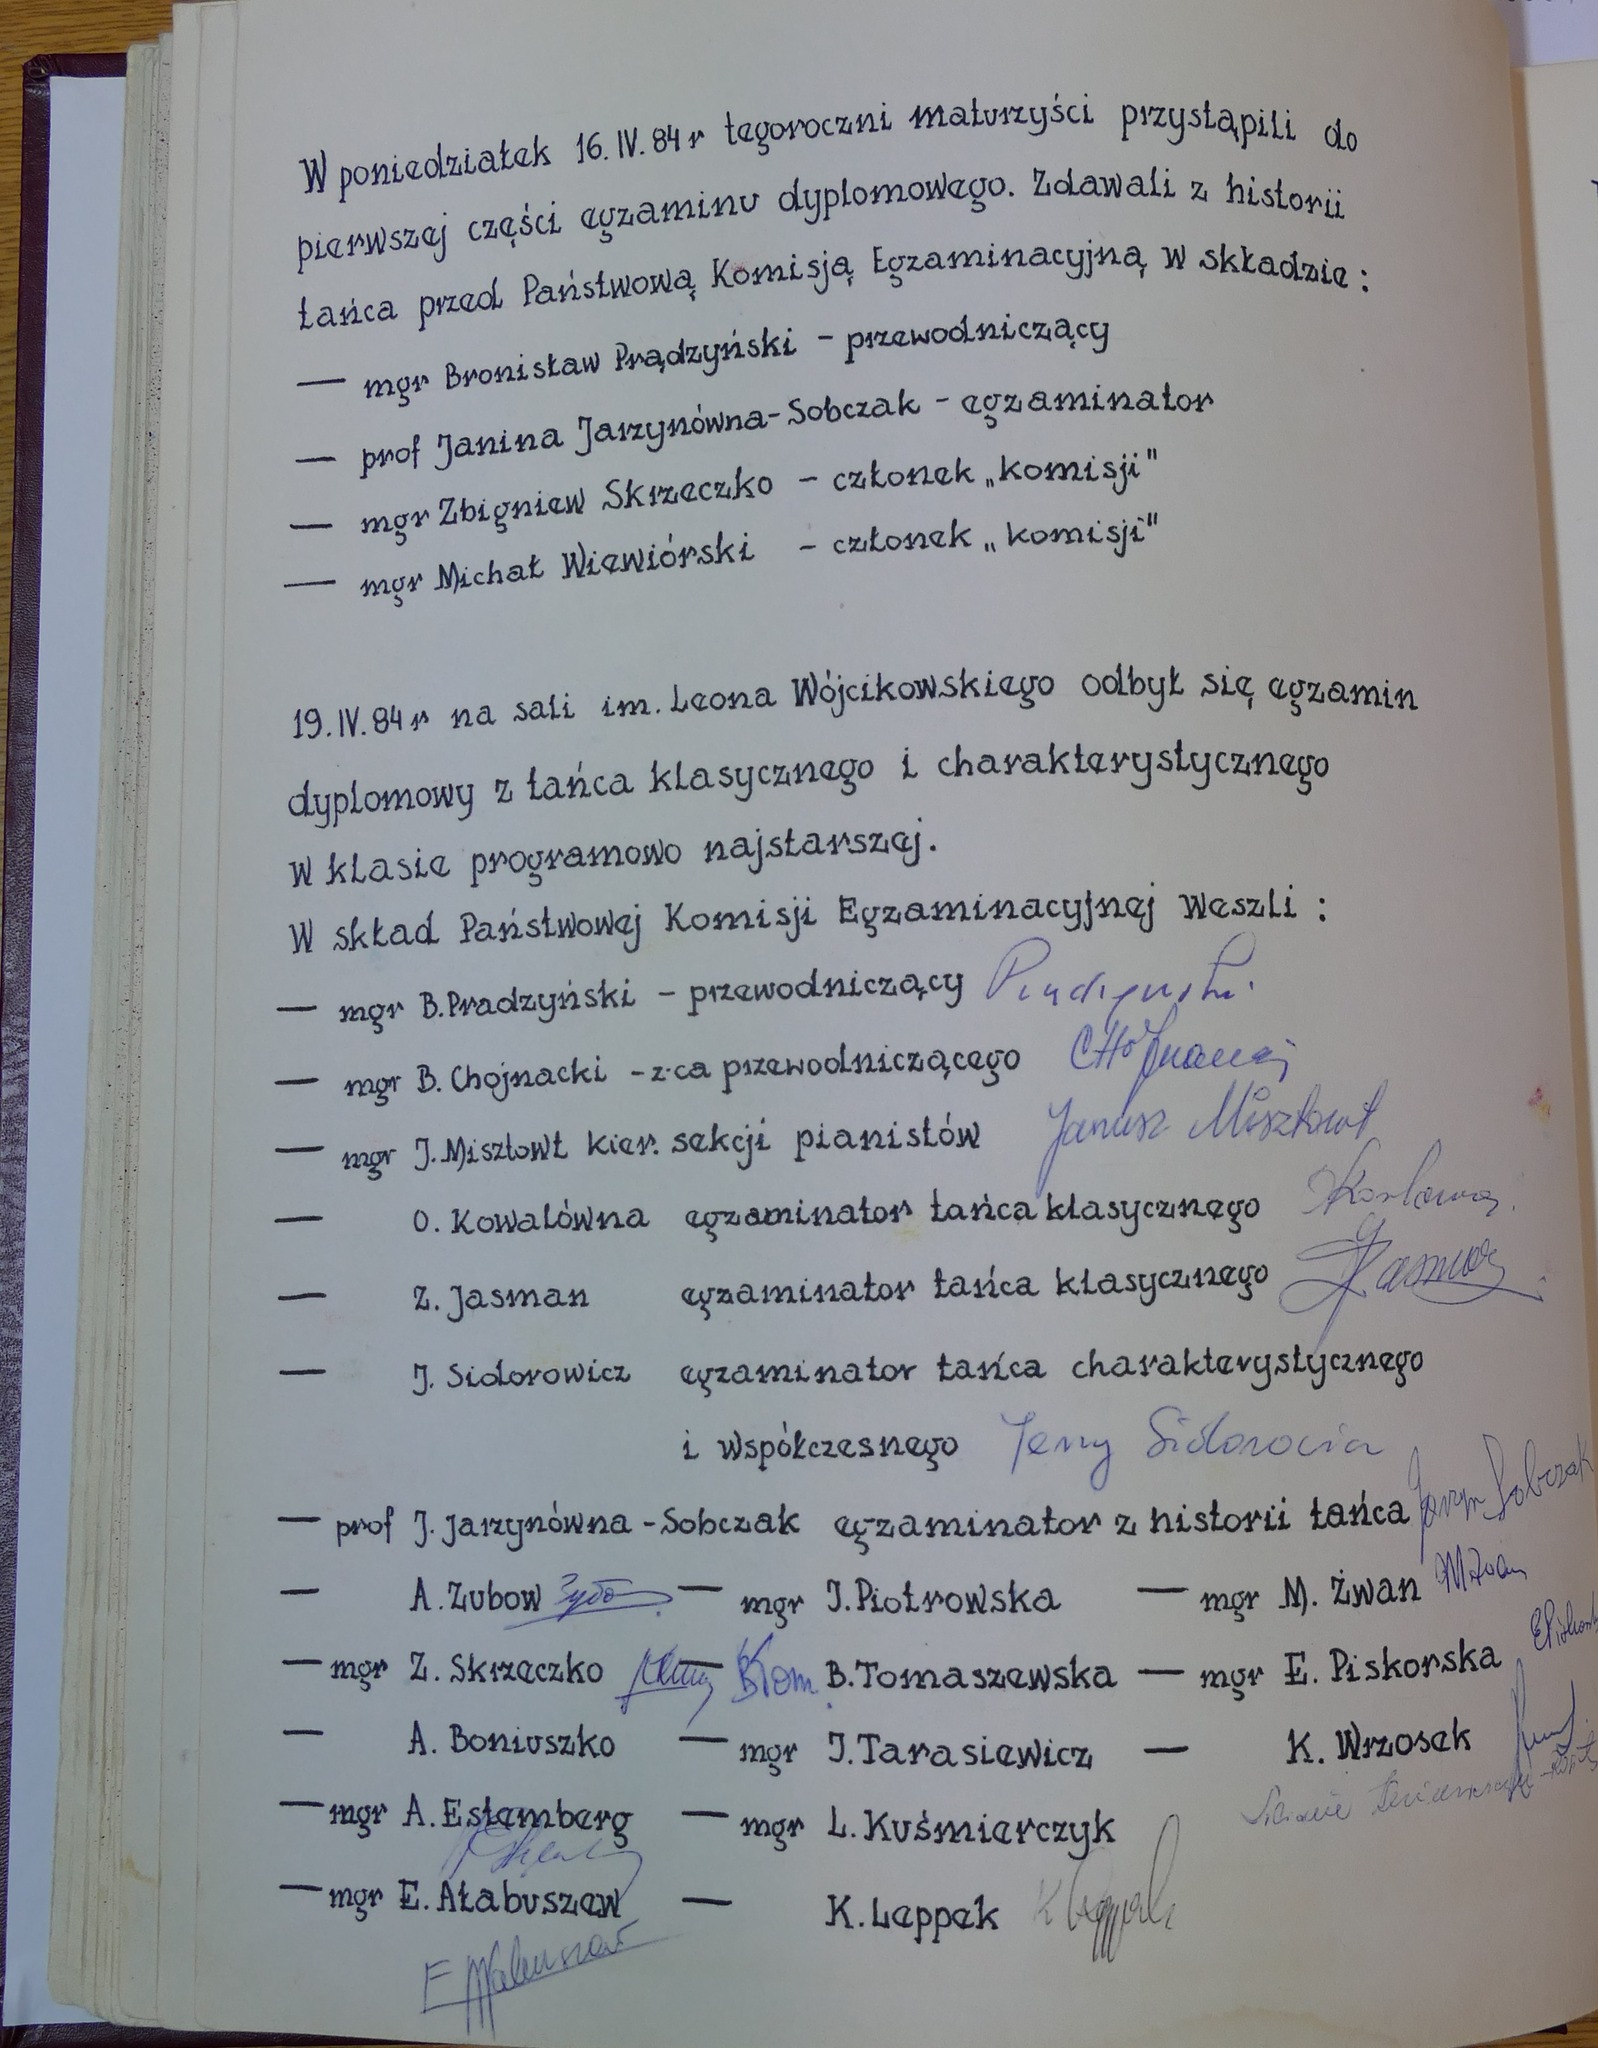 W poniedziałek 16.IV.84 r tegoroczni maturzyści przystąpili do
pierwszej części egzaminu dyplomowego. Zdawali z historii
tańca przed Państwową Komisją Egzaminacyjną w składzie :
— mgr Bronisław Prądzyński – przewodniczący
— prof Janina Jarzynówna-Sobczak – egzaminator
— mgr Zbigniew Skrzeczko – członek „komisji"
— mgr Michał Wiewiórski – członek „komisji"
19.IV.84 r na sali im. Leona Wójcikowskiego odbył się egzamin
dyplomowy z tańca klasycznego i charakterystycznego
w klasie programowo najstarszej.
W skład Państwowej Komisji Egzaminacyjnej weszli :
— mgr B. Pradzyński – przewodniczący
— mgr B. Chojnacki – z-ca przewodniczącego
— mgr J. Misztowt kier. sekcji pianistów Janusz Misztowt
— O. Kowalówna egzaminator tańca klasycznego
— Z. Jasman egzaminator tańca klasycznego
— J. Sidorowicz egzaminator tańca charakterystycznego
i współczesnego Jerzy Sidorowicz
— prof J. Jarzynówna-Sobczak egzaminator z historii tańca Jarzyn Sobczak
— A. Zubow — mgr J. Piotrowska — mgr M. Żwan
— mgr Z. Skrzeczko BTom. — B. Tomaszewska — mgr E. Piskorska
— A. Boniuszko — mgr J. Tarasiewicz — K. Wrzosek
— mgr A. Estemberg — mgr L. Kuśmierczyk
— mgr E. Ałabuszew — K. Leppek